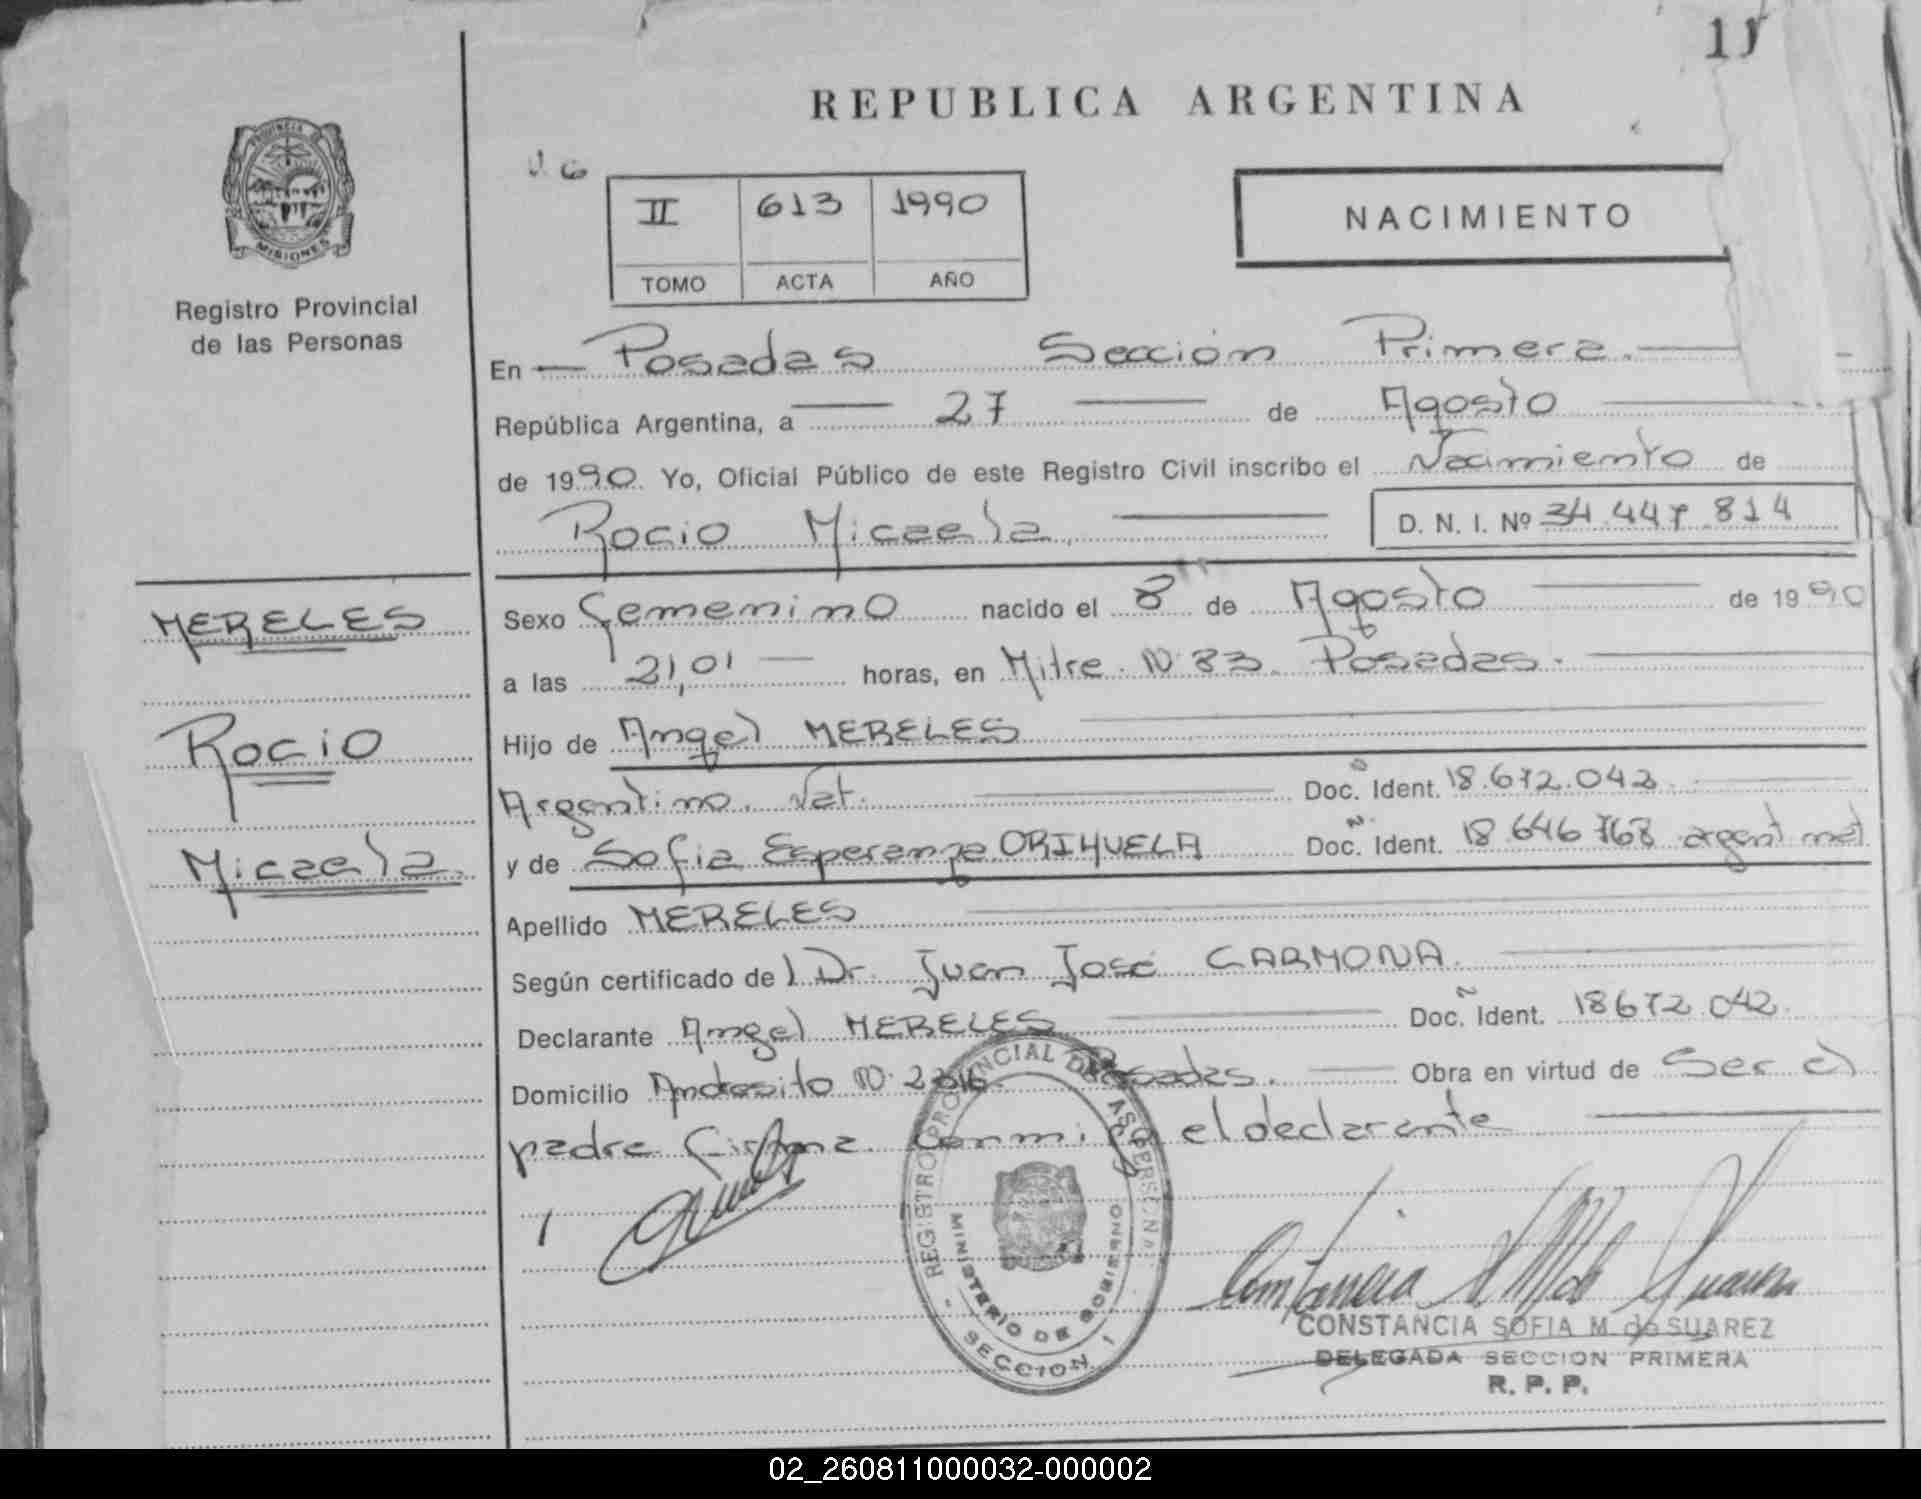 11
REPUBLICA ARGENTINA
PROVINCIA DE
MISIONES
Registro Provincial
de las Personas
II 613 1990
TOMO ACTA AÑO
NACIMIENTO
En Posadas Sección Primera.
República Argentina, a 27 de Agosto
de 1990. Yo, Oficial Público de este Registro Civil inscribo el Nacimiento de
Rocio Micaela, D. N. I. Nº 34.447.814
MERELES
Rocio
Micaela.
Sexo Femenino nacido el 8 de Agosto de 1990
a las 21,01 horas, en Mitre N° 83. Posadas.
Hijo de Angel MERELES
Argentino. Nat. Doc. Ident. 18.672.042
y de Sofia Esperanza ORIHUELA Doc. Ident. 18 646 768 argent nat
Apellido MERELES
Según certificado del Dr. Juan José CARMONA.
Declarante Angel MERELES Doc. Ident. 18672.042.
Domicilio Andresito N° Posadas. Obra en virtud de Ser el
padre Firma Conmigo el declarante
REGISTRO PROVINCIAL DE LAS PERSONAS
MINISTERIO DE GOBIERNO
SECCION 1
CONSTANCIA SOFIA M. de SUAREZ
DELEGADA SECCION PRIMERA
R. P. P.
02_260811000032-000002